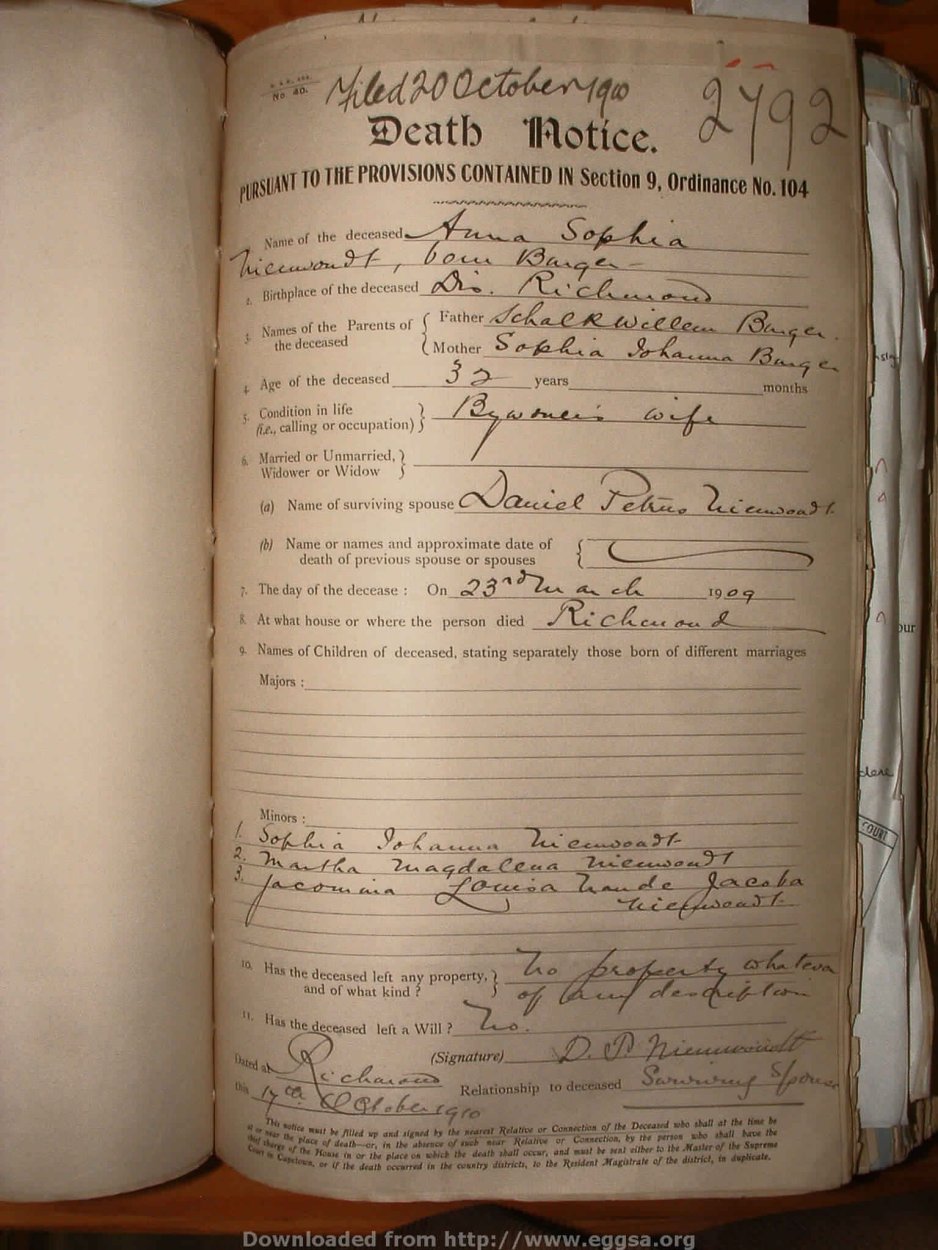 No. 40.
Filed 20 October 1910
2792
Death Notice.
PURSUANT TO THE PROVISIONS CONTAINED IN Section 9, Ordinance No. 104
Name of the deceased Anna Sophia
Nieuwoudt, born Burger
2. Birthplace of the deceased Dis. Richmond
3. Names of the Parents of the deceased { Father Schalk Willem Burger.
Mother Sophia Johanna Burger
4. Age of the deceased 32 years months
5. Condition in life (i.e., calling or occupation) } Bywoner's wife
6. Married or Unmarried, Widower or Widow }
(a) Name of surviving spouse Daniel Petrus Nieuwoudt
(b) Name or names and approximate date of
death of previous spouse or spouses {
7. The day of the decease : On 23rd March 1909
8. At what house or where the person died Richmond
9. Names of Children of deceased, stating separately those born of different marriages
Majors :
Minors :
1. Sophia Johanna Nieuwoudt
2. Martha Magdalena Nieuwoudt
3. Jacomina Louisa Jacoba
Nieuwoudt
10. Has the deceased left any property, and of what kind ? } No property whatever
of any description
11. Has the deceased left a Will ? No.
(Signature) D. P. Nieuwoudt
Dated at Richmond Relationship to deceased Surviving Spouse
this 17th October 1910
This notice must be filled up and signed by the nearest Relative or Connection of the Deceased who shall at the time be
at or near the place of death—or, in the absence of such near Relative or Connection, by the person who shall have the
chief charge of the House in or the place on which the death shall occur, and must be sent either to the Master of the Supreme
Court in Capetown, or if the death occurred in the country districts, to the Resident Magistrate of the district, in duplicate.
COURT
Downloaded from http://www.eggsa.org